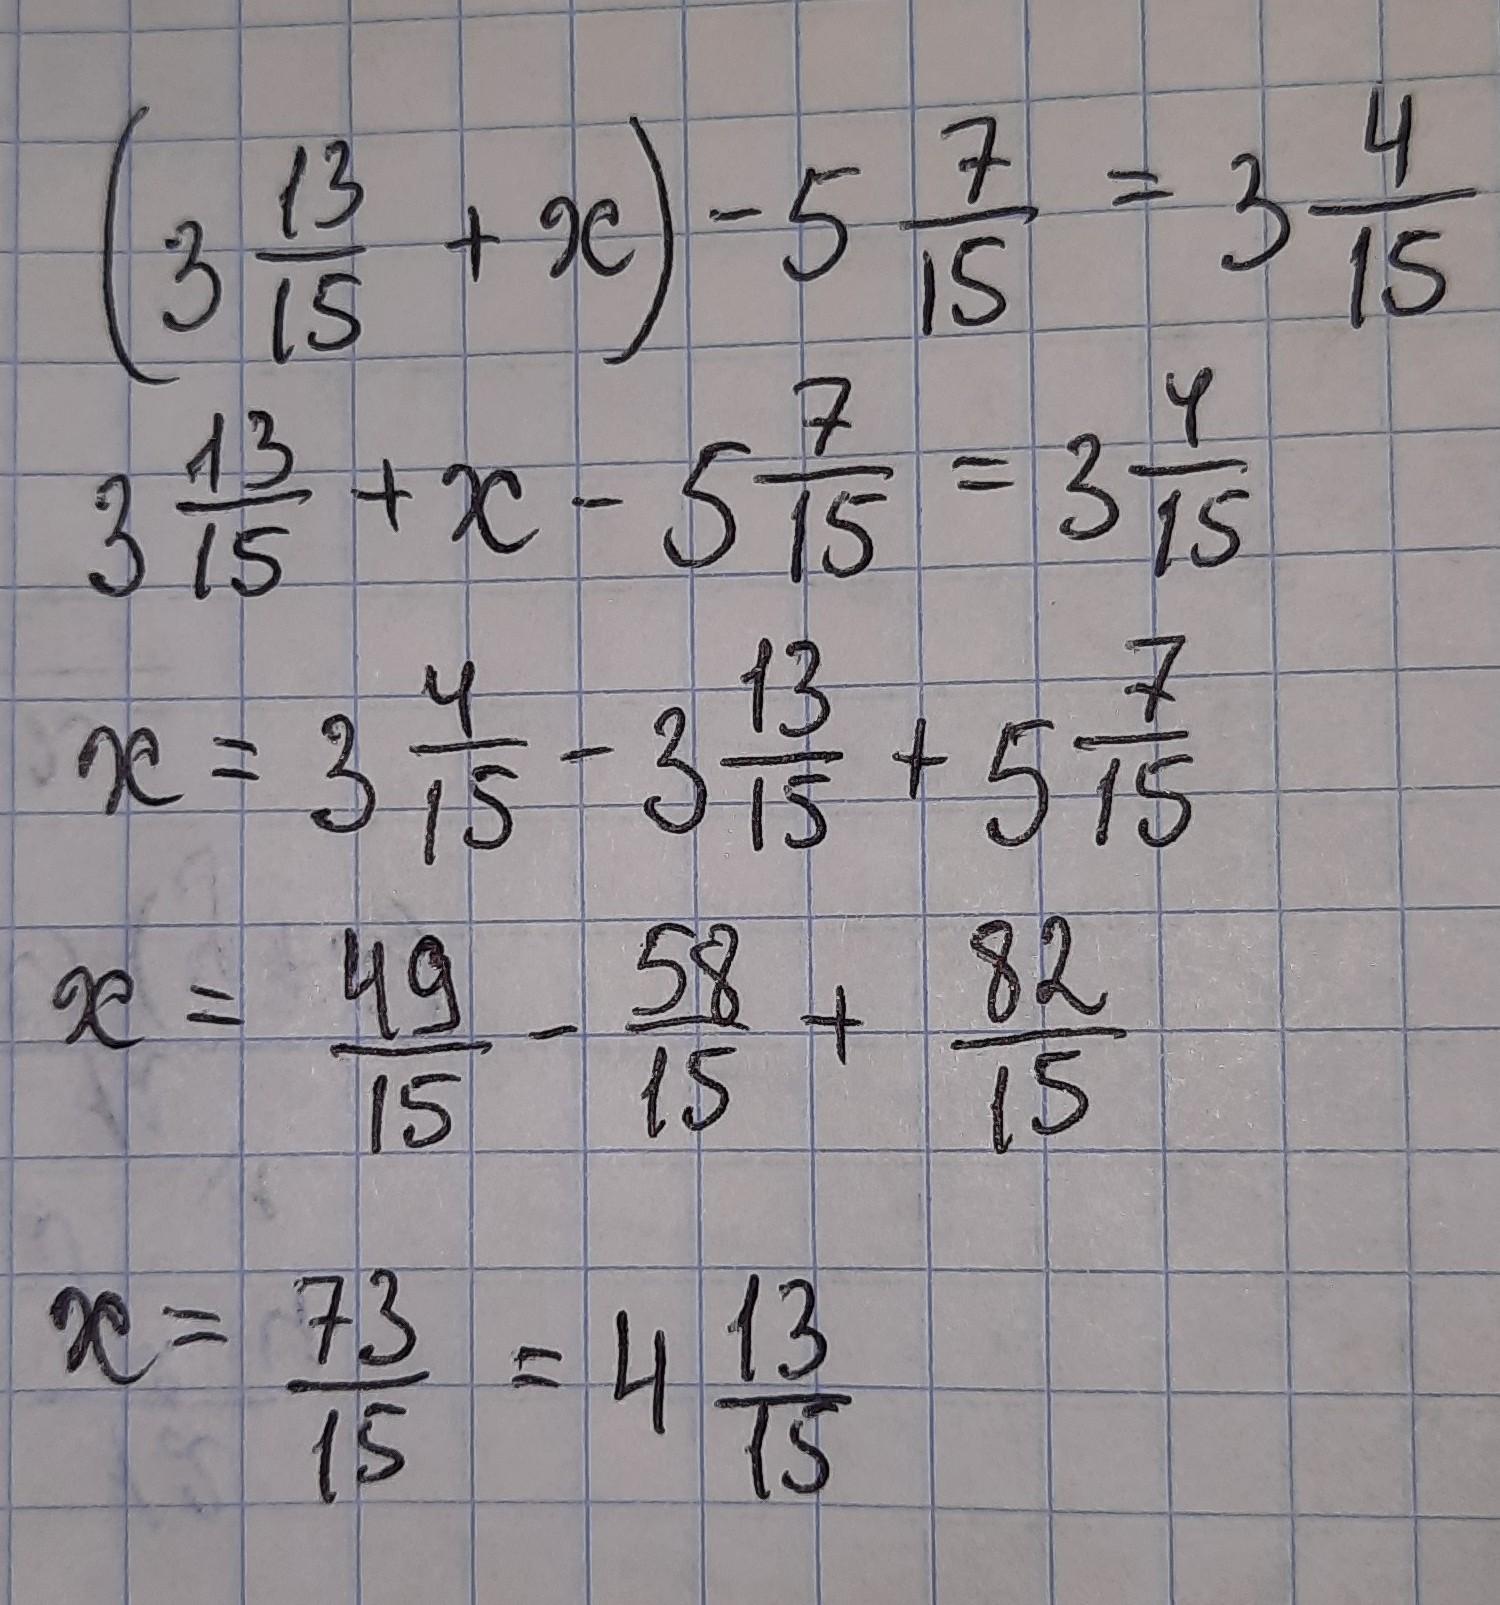 (3 13/15 + x) - 5 7/15 = 3 4/15
3 13/15 + x - 5 7/15 = 3 4/15
x = 3 4/15 - 3 13/15 + 5 7/15
x = 49/15 - 58/15 + 82/15
x = 73/15 = 4 13/15